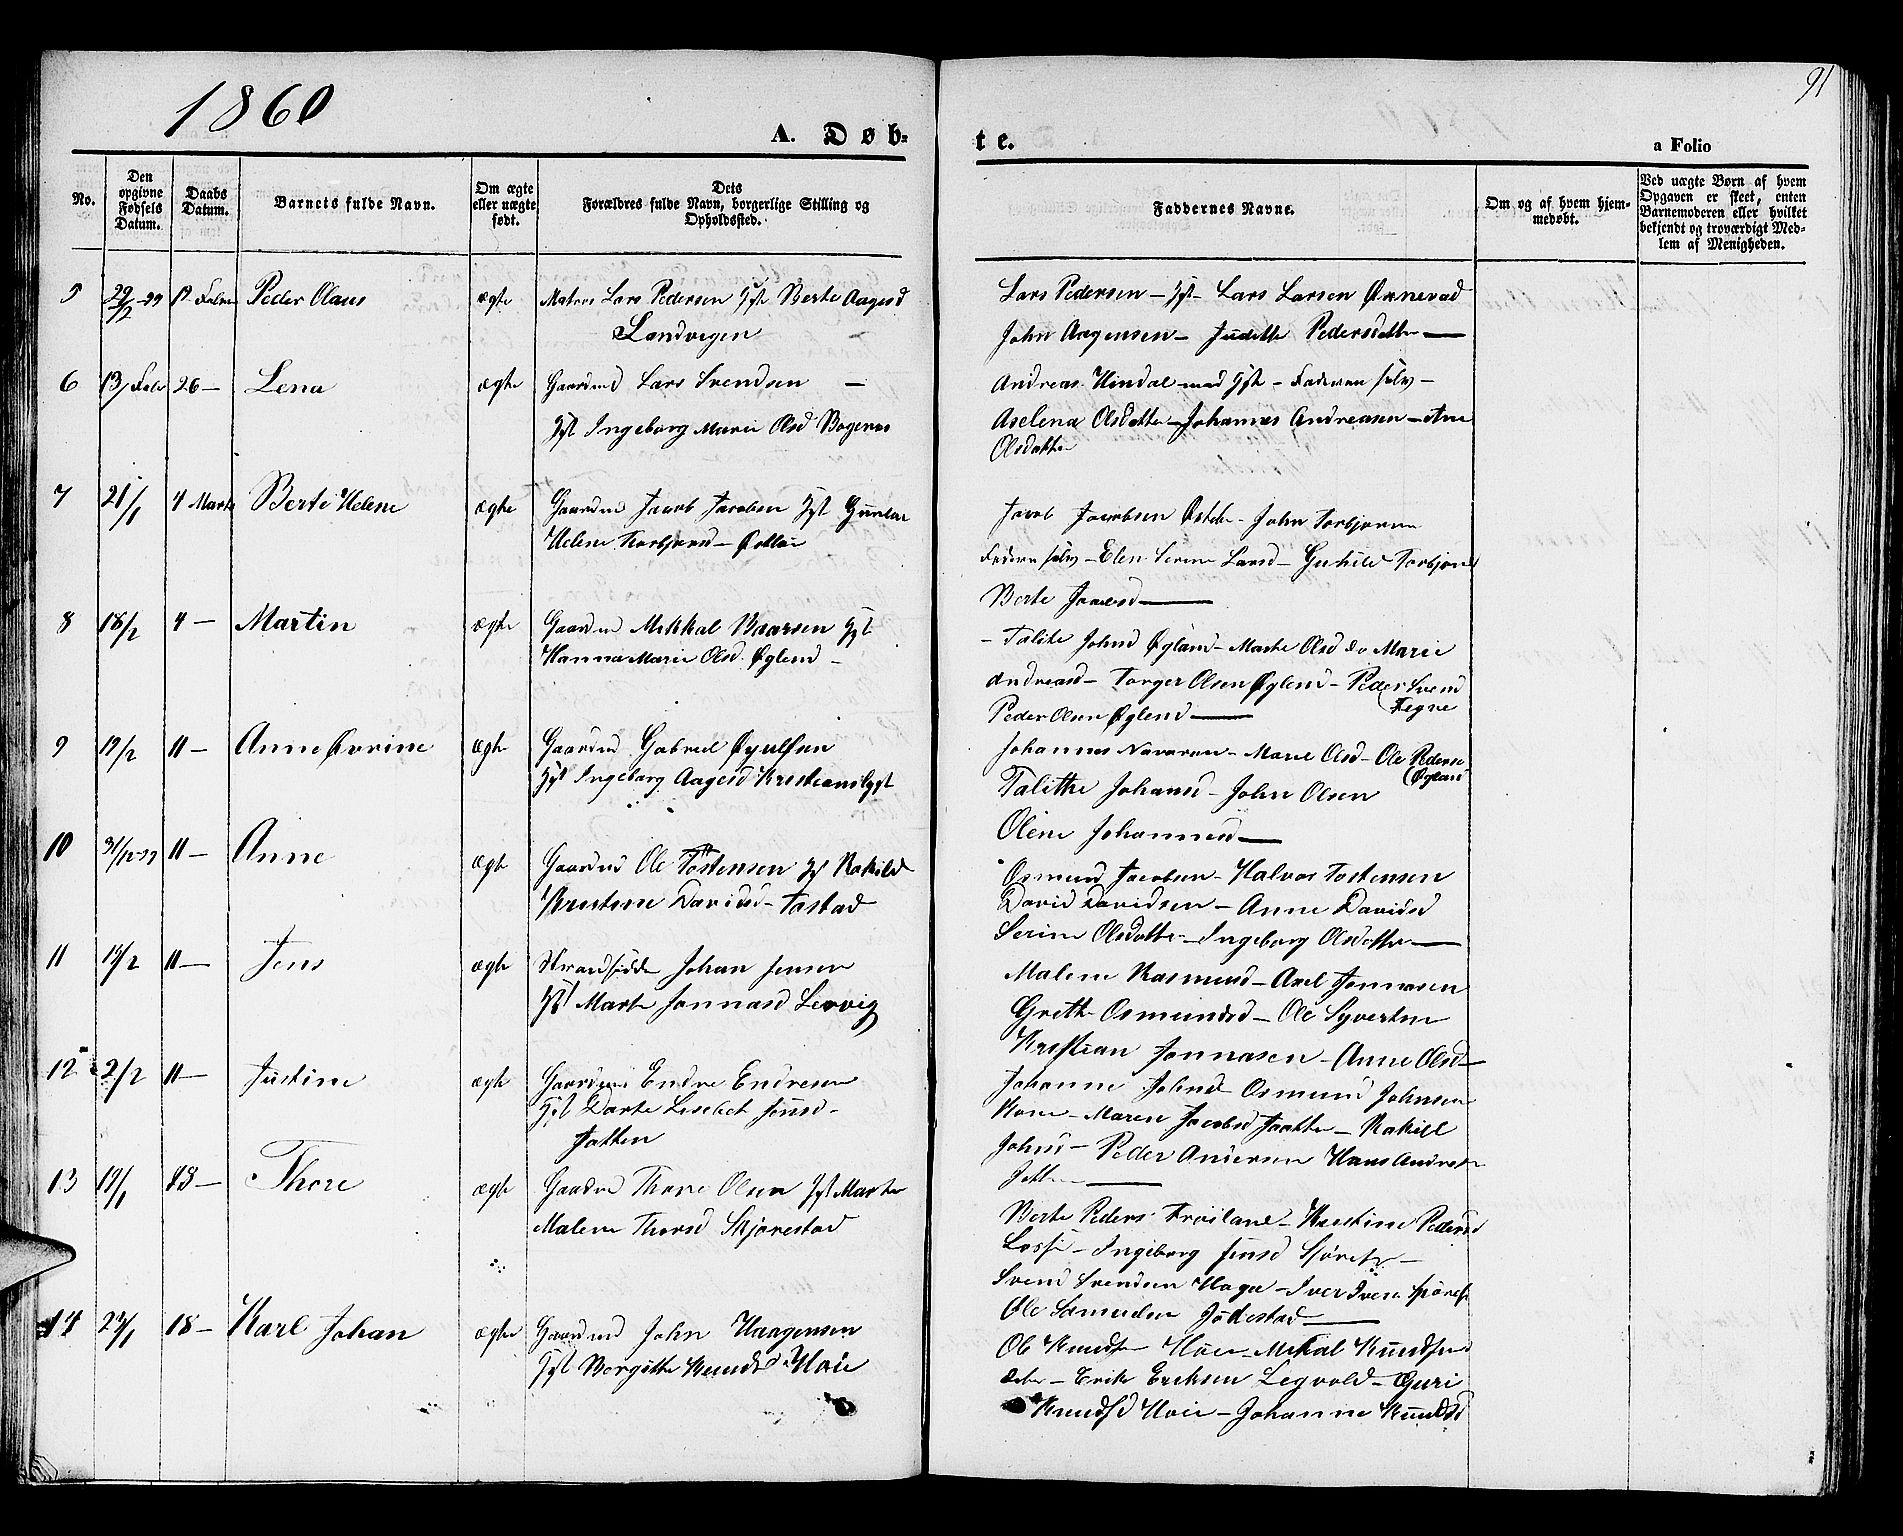 1860
91
A. Døb-
te.
a Folio
No.
Den opgivne Fødsels Datum.
Daabs Datum.
Barnets fulde Navn.
Om ægte eller uægte født.
Dets Forældres fulde Navn, borgerlige Stilling og Opholdssted.
Faddernes Navne.
Om og af hvem hjemmedøbt.
Ved uægte Børn af hvem Opgaven er skeet, enten Barnemoderen eller hvilket bekjendt og troværdigt Medlem af Menigheden.
5 Peder Olaus ægte Lars Pedersen Hst Berte Aagesd
Landvegen
Lars Pedersen – Hst – Lars Larsen Ønnevad
John Aagensen – Judithe Pedersdatter
6 13/Febr 26 – Lena ægte Gaardmd Lars Svendsen –
Hst Ingeborg Marie Olsd Bogenes
Andreas Hindal med Hst – Faderen selv –
Aselena Olsdatter – Johannes Andreasen – Ane
Olsdatter
7 21/1 4 Marts Berte Helene ægte Gaardmd Jacob Jacobsen Hst
Helene Torbjørnsd –
Jacob Jacobsen – John Torbjørnsen
Faderen selv – Elen Serine Larsd – Guhild Torbjørnsd
Berte Jacobsd
8 18/2 4 – Martin ægte Gaardmd Mikkal Baarsen Hst
Hanna Marie Olsd. Øglend –
– Talite Johnsd Øgland – Marte Olsd do Marie
Andreasd – Torger Olsen Øglend – Peder Svend
Tegne
Peder Olsen Øglend
9 19/2 11 – Anne Øvrine ægte Gaardmd Gabriel Øyulfsen
Hst Ingeborg Aagesd Kristianslyst
Johannes – Marie Olsd – Ole Pederse
(Øgland
Talithe Johansd – John Olsen
Oline Johannesd
10 31/12-59 11 – Anne ægte Gaardmd Ole Tostensen Hst Rakild
Kristine Davidsd – Tostad
Osmund Jacobsen – Halvor Tostensen
David Davidsen – Anne Davidsd
Serine Olsdatter – Ingeborg Olsdatter
11 11 – Jens ægte Strandsidder Johan Jensen
Hst Marte Jonnasd Lervig
Malene Rasmusd – Axel Jonnasen
Grethe Osmundsd – Ole Syvertsen
Kristian Jonnasen – Anne Olsd –
12 2/2 11 – Justine ægte Gaardmd Endre Endresen
Hst Dorte Lisebet Jonsd –
Jatten
Johanne Johnsd Osmund Johnsen
Kone – Maren Jacobsd Jaatten – Rakill
Johnsd – Peder Andersen Hans Andrea
13 19/1 18 – Thore ægte Gaardmd Thore Olsen Hst Marte
Malene Thorsd Skjørestad
Berte Peders Frøiland – Kristine Pedersd
– Ingeborg Jonsd
Svend Svendsen Hage – Iver Ivers
Ole Samuelsen
14 18 – Karl Johan ægte Gaardmd John Haagensen
Hst Borgitte Knudsd Høie
Ole Knudsen Høie – Mikal Knudsen
– Erik Eriksen Legvold – Guri
Knudsd Høie – Johanne Knudsd